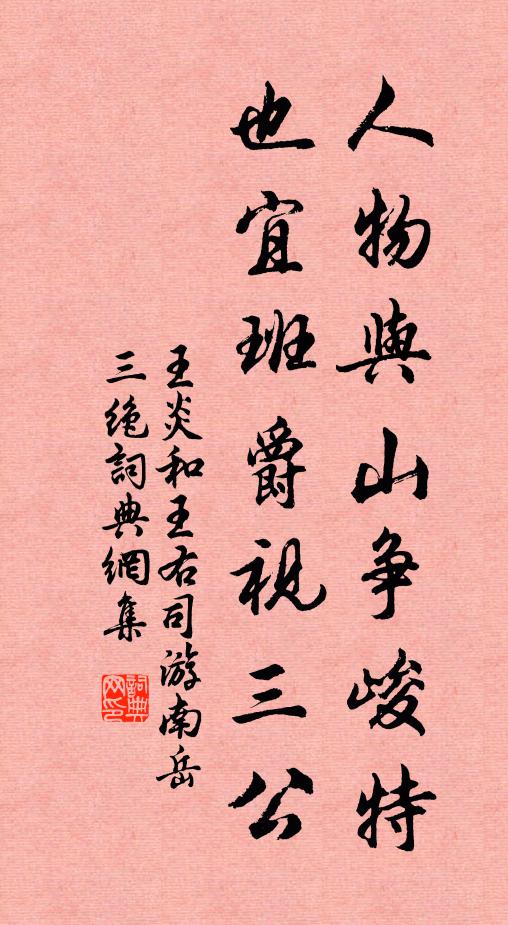 人物與山争峻特
也宜班爵視三公
王炎和王右司游南岳
三绝詞典網集
詞典网印